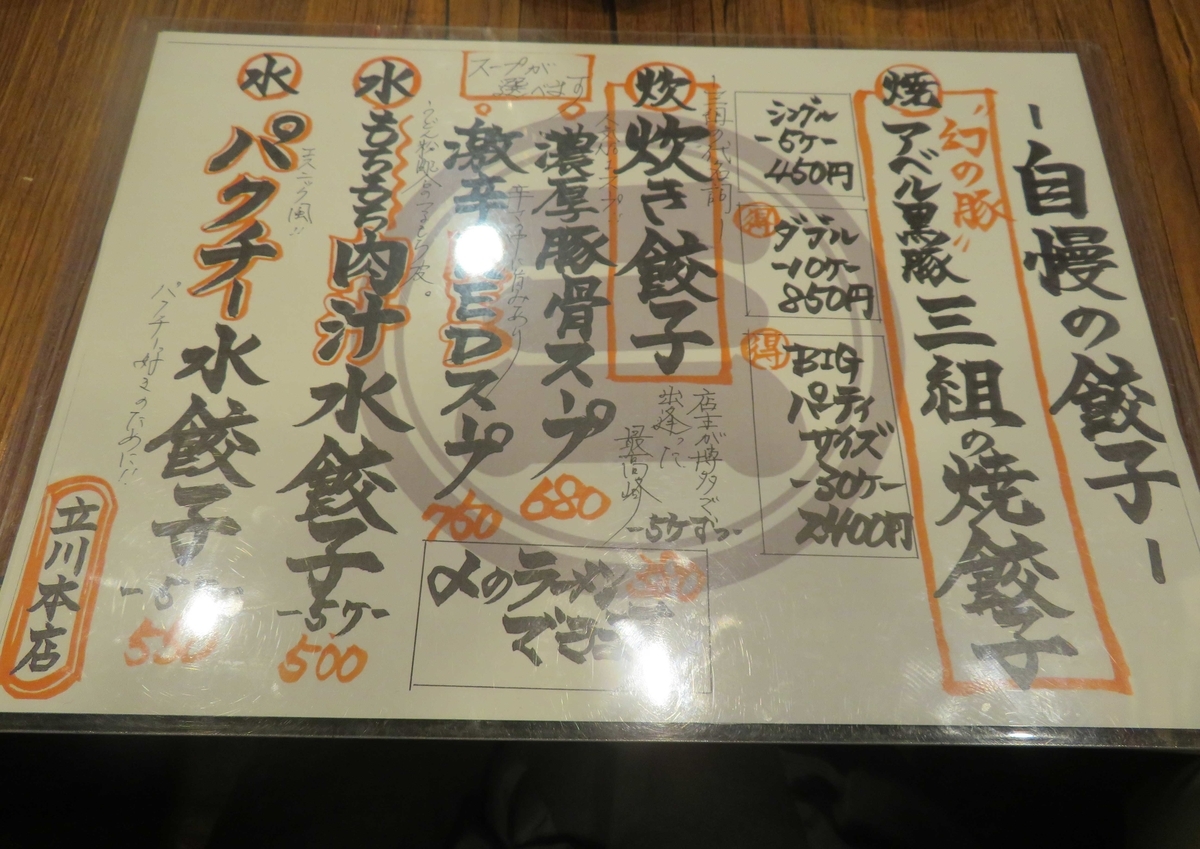 ー自慢の餃子ー
焼
"幻の豚"
アベル黒豚三組の焼餃子
シングル
-5ケ-
450円
得
ダブル
-10ケ-
850円
得
BIG
パーティ
サイズ
-30ケ-
2400円
炊
炊き餃子
店主が博多で
出逢った
最高峰
-5ケずつ-
スープが
選べます
濃厚豚骨スープ
680
激辛REDスープ
760
〆のラーメン
水
もちもち肉汁水餃子
-5ケ-
500
水
パクチー水餃子
エスニック風!!
パクチー好きのために!!
立川本店